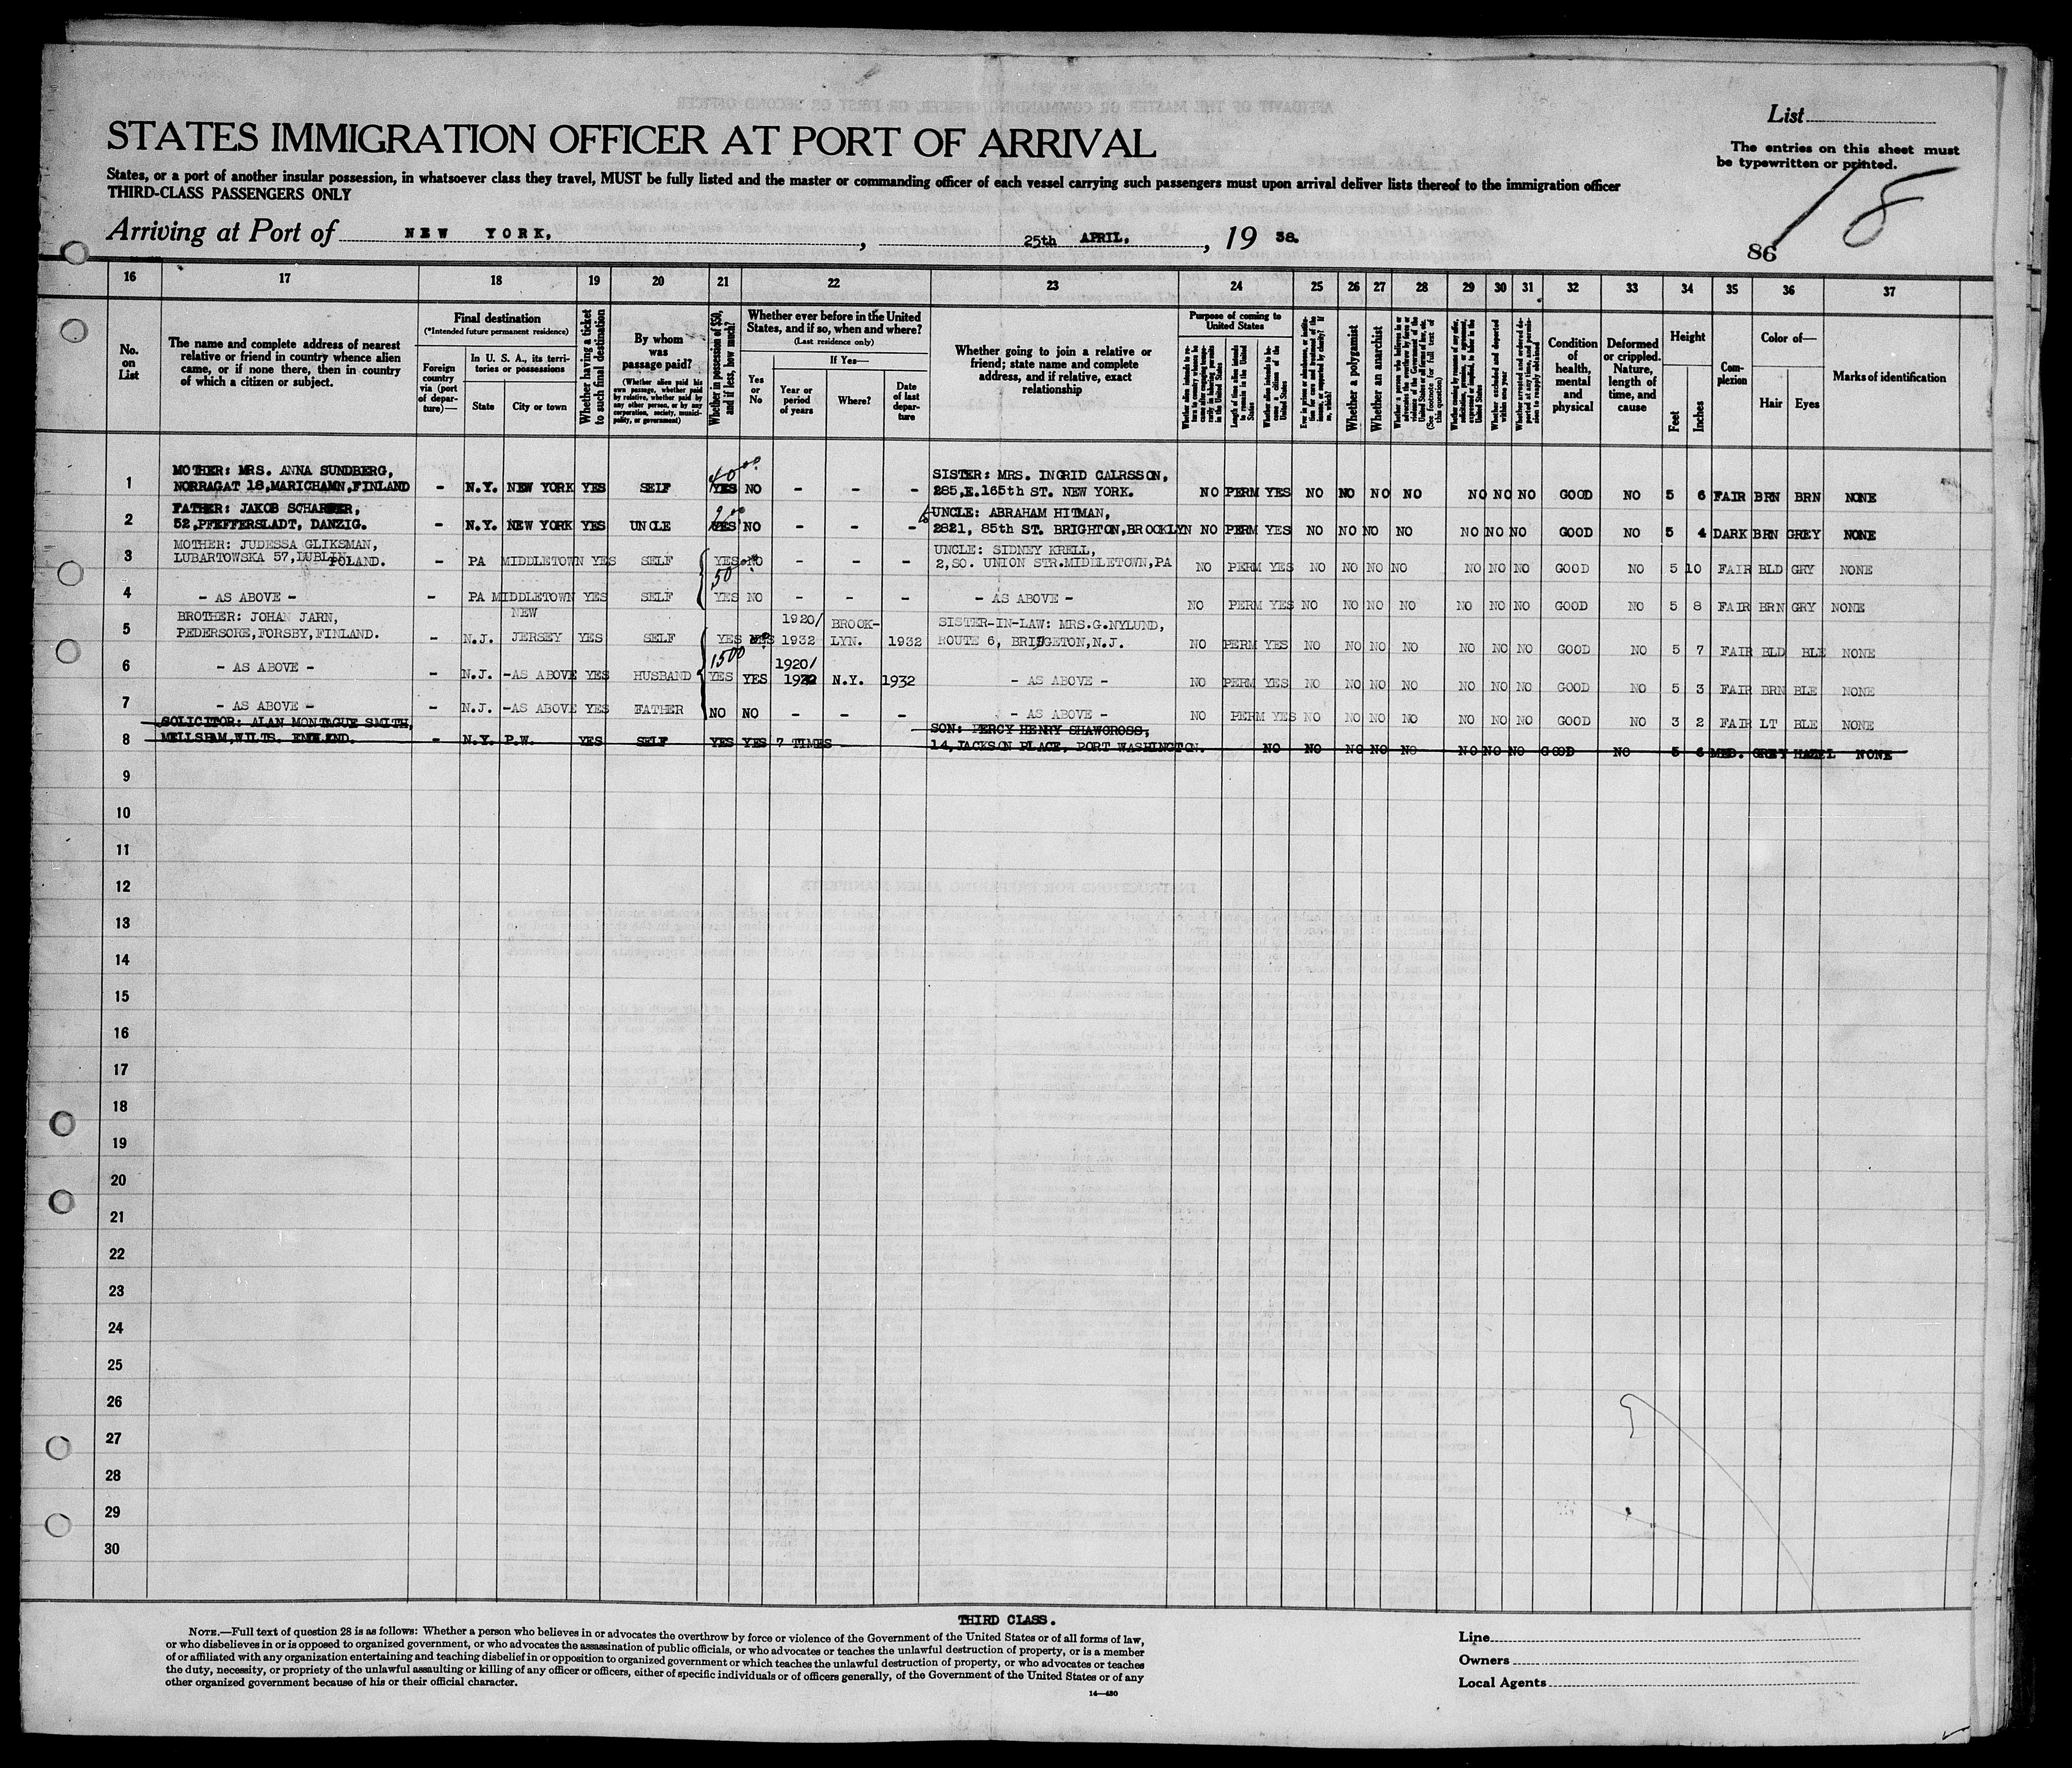 List
The entries on this sheet must
be typewritten or printed.
STATES IMMIGRATION OFFICER AT PORT OF ARRIVAL
States, or a port of another insular possession, in whatsoever class they travel, MUST be fully listed and the master or commanding officer of each vessel carrying such passengers must upon arrival deliver lists thereof to the immigration officer
THIRD-CLASS PASSENGERS ONLY
Arriving at Port of NEW YORK, 25th APRIL, 19 38.
86
18
16 17 18 19 20 21 22 23 24 25 26 27 28 29 30 31 32 33 34 35 36 37
No. on List
The name and complete address of nearest
relative or friend in country whence alien
came, or if none there, then in country
of which a citizen or subject.
Final destination
(*Intended future permanent residence)
Foreign country via (port of departure)—
In U. S. A., its territories or possessions
State
City or town
Whether having a ticket to such final destination
By whom was passage paid?
(Whether alien paid his own passage, whether paid by relative, whether paid by any other person, or by any corporation, society, municipality, or government)
Whether in possession of $50, and if less, how much?
Whether ever before in the United States, and if so, when and where?
(Last residence only)
Yes or No
If Yes—
Year or period of years
Where?
Date of last departure
Whether going to join a relative or
friend; state name and complete
address, and if relative, exact
relationship
Purpose of coming to United States
Whether a polygamist
Whether an anarchist
Condition of health, mental and physical
Deformed or crippled. Nature, length of time, and cause
Height
Feet
Inches
Complexion
Color of—
Hair
Eyes
Marks of identification
1 MOTHER: MRS. ANNA SUNDBERG,
NORRAGAT 18,MARICHAMN,FINLAND - N.Y. NEW YORK YES SELF YES NO - - -
SISTER: MRS. INGRID CALRSSON,
285,E.165th ST. NEW YORK. NO PERM YES NO NO NO NO NO NO NO GOOD NO 5 6 FAIR BRN BRN NONE
2 FATHER: JAKOB
52,PFEFFERSLADT, DANZIG. - N.Y. NEW YORK YES UNCLE YES NO - - -
UNCLE: ABRAHAM HITMAN,
2821, 85th ST. BRIGHTON,BROOKLYN NO PERM YES NO NO NO NO NO NO NO GOOD NO 5 4 DARK BRN GREY NONE
3 MOTHER: JUDESSA GLIKSMAN,
LUBARTOWSKA 57,DUBLIN POLAND. PA MIDDLETOWN YES SELF YES NO - - -
UNCLE: SIDNEY KRELL,
2,SO. UNION STR.MIDDLETOWN,PA NO PERM YES NO NO NO NO NO NO NO GOOD NO 5 10 FAIR BLD GRY NONE
50
4 - AS ABOVE - - PA MIDDLETOWN YES SELF YES NO - - - - AS ABOVE - NO PERM YES NO NO NO NO NO NO NO GOOD NO 5 8 FAIR BRN GRY NONE
5 BROTHER: JOHAN JARN,
PEDERSORE,FORSBY,FINLAND. - N.J. NEW JERSEY YES SELF YES YES 1920/1932 BROOK-LYN. 1932
SISTER-IN-LAW: MRS.G.NYLUND,
ROUTE 6, BRIDGETON,N.J. NO PERM YES NO NO NO NO NO NO NO GOOD NO 5 7 FAIR BLD BLE NONE
1500
6 - AS ABOVE - - N.J. -AS ABOVE YES HUSBAND YES YES 1920/1932 N.Y. 1932 - AS ABOVE - NO PERM YES NO NO NO NO NO NO NO GOOD NO 5 3 FAIR BRN BLE NONE
7 - AS ABOVE - - N.J. -AS ABOVE YES FATHER NO NO - - - - AS ABOVE - NO PERM YES NO NO NO NO NO NO NO GOOD NO 3 2 FAIR LT BLE NONE
8 SOLICITOR: ALAN MONTAGUE SMITH,
MELLSHAM,WILTS. ENGLAND. - N.Y. P.W. YES SELF YES YES 7 TIMES
SON: PERCY HENRY SHAWCROSS,
14,JACKSON PLACE, PORT WASHINGTON. NO NO NO NO NO NO NO NO GOOD NO 5 6 MED. GREY HAZEL NONE
9
10
11
12
13
14
15
16
17
18
19
20
21
22
23
24
25
26
27
28
29
30
THIRD CLASS.
NOTE.—Full text of question 28 is as follows: Whether a person who believes in or advocates the overthrow by force or violence of the Government of the United States or of all forms of law,
or who disbelieves in or is opposed to organized government, or who advocates the assassination of public officials, or who advocates or teaches the unlawful destruction of property, or is a member
of or affiliated with any organization entertaining and teaching disbelief in or opposition to organized government or which teaches the unlawful destruction of property, or who advocates or teaches
the duty, necessity, or propriety of the unlawful assaulting or killing of any officer or officers, either of specific individuals or of officers generally, of the Government of the United States or of any
other organized government because of his or their official character.
14—430
Line
Owners
Local Agents